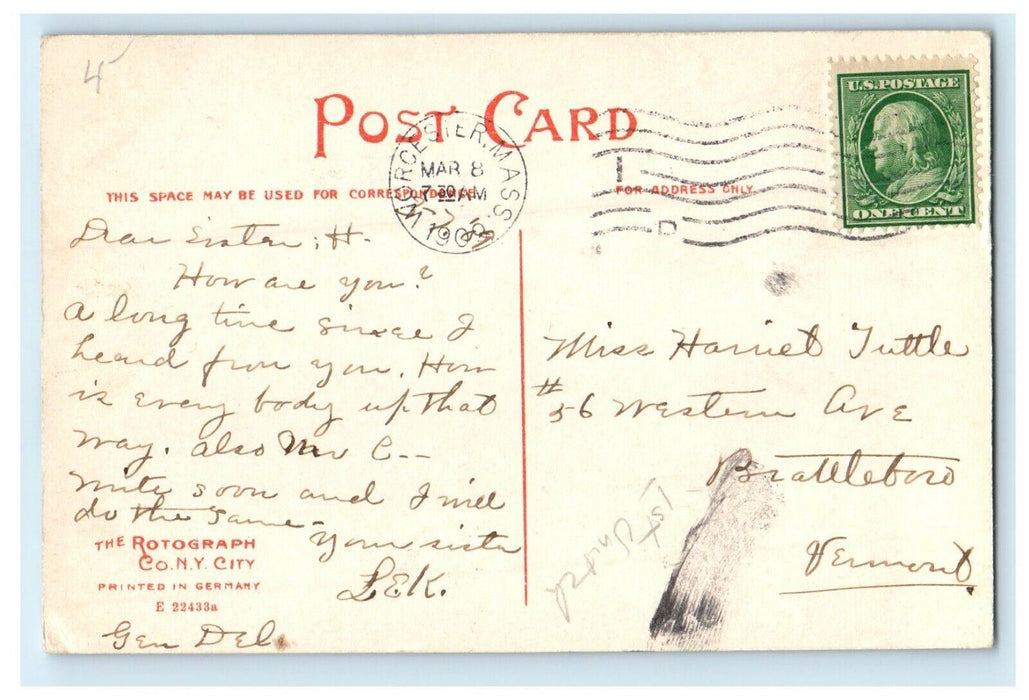 4
POST CARD
U.S. POSTAGE
ONE CENT
WORCESTER, MASS.
MAR 8
7 30 AM
190
THIS SPACE MAY BE USED FOR CORRESPONDENCE
FOR ADDRESS ONLY
I
D
Dear Sister; H-
How are you?
A long time since I
heard from you. How
is every body up that
way. also Mr C--
Write soon and I will
do the same-
Your sister
L.E.K.
Gen Del.
THE ROTOGRAPH
CO. N.Y. CITY
PRINTED IN GERMANY
E 22433a
Miss Harriet Tuttle
#56 Western Ave
Brattleboro
Vermont.